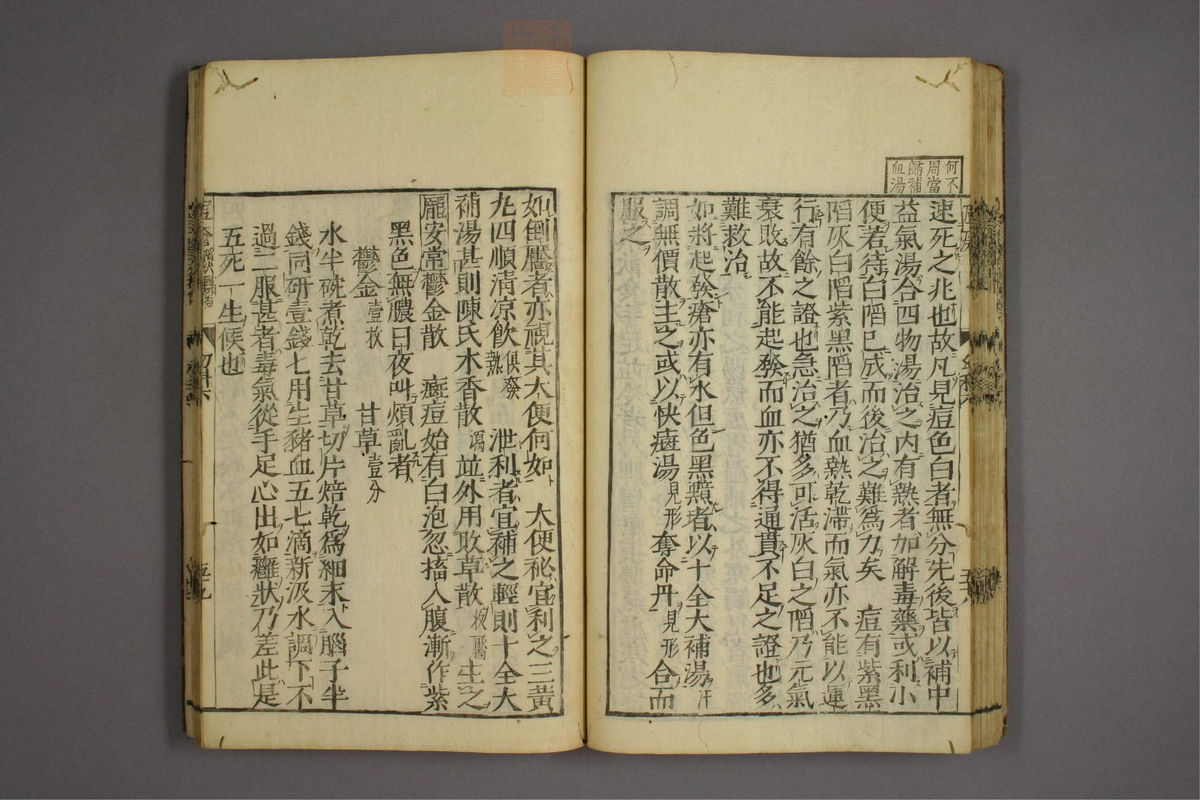 何不
周當
歸補
血湯
速死之兆也故凡見痘色白者無分先後皆以補中
益氣湯合四物湯治之内有熱者加解毒藥或利小
便若待白陷已成而後治之難爲力矣　痘有紫黑
陷灰白陷紫黑陷者乃血熱乾滞而氣亦不能以運
行有餘之證也急治之猶多可活灰白之陷乃元氣
衰敗故不能起發而血亦不得通貫不足之證也多
難救治
如將起發瘡亦有水但色黑黯者以十全大補湯汗
調無價散主之或以快癍湯見形奪命丹見形合而
服之
如倒靨者亦視其大便何如　大便秘宜利之三黄
丸四順清凉飲俱發熱　泄利者宜補之輕則十全大
補湯甚則陳氏木香散瀉並外用敗草散收靨生之
龐安常鬱金散　癍痘始有白泡忽搐入腹漸作紫
黑色無膿日夜叫煩亂者
鬱金壹枚　甘草壹分
水半碗煮乾去甘草切片焙乾爲細末入腦子半
錢同研壹錢七用生豬血五七滴新汲水調下不
過二服甚者毒氣從手足心出如癰狀乃差此是
五死一生候也